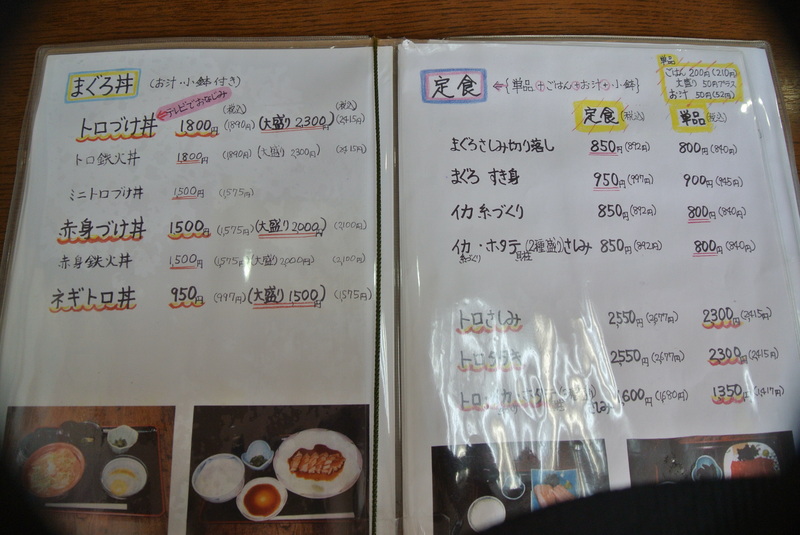 まぐろ丼 (お汁・小鉢付き)
テレビでおなじみ
(税込) (税込)
トロづけ丼 1800円 (1890円) (大盛り 2300円) (2415円)
トロ鉄火丼 1800円 (1890円) (大盛り 2300円) (2415円)
ミニトロづけ丼 1500円 (1,575円)
赤身づけ丼 1500円 (1,575円) (大盛り 2000円) (2,100円)
赤身鉄火丼 1500円 (1,575円) (大盛り 2,000円) (2,100円)
ネギトロ丼 950円 (997円) (大盛り 1500円) (1,575円)
定食 ←{単品+ごはん+お汁+小鉢}
単品
ごはん 200円 (210円)
大盛り 50円プラス
お汁 50円 (52円)
定食 (税込) 単品 (税込)
まぐろさしみ切り落し 850円 (892) 800円 (840)
まぐろ すき身 950円 (997) 900円 (945)
イカ 糸づくり 850円 (892) 800円 (840)
イカ・ホタテ (2種盛り) さしみ 850円 (892) 800円 (840)
糸づくり 貝柱
トロさしみ 2,550円 (2,677円) 2300円 (2,415)
トロタタキ 2550円 (2,677円) 2300円 (2,415)
トロ・イカ・ホタテ さしみ 1600円 (1,680円) 1350円 (1,417円)